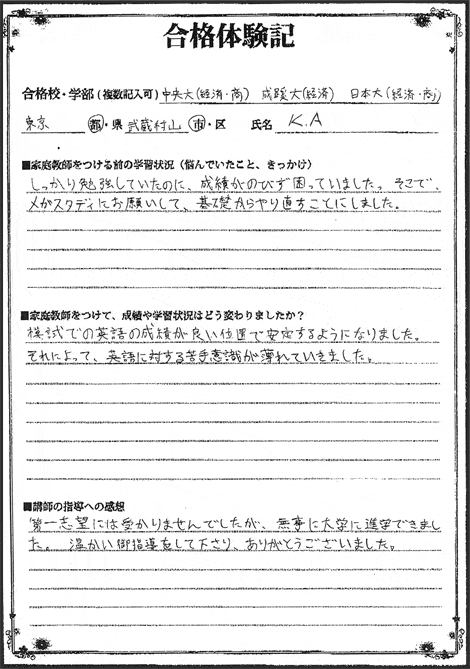 合格体験記
合格校・学部(複数記入可) 中央大(経済・商) 成蹊大(経済) 日本大(経済・商)
東京 都・県 武蔵村山 市・区 氏名 K.A
■家庭教師をつける前の学習状況(悩んでいたこと、きっかけ)
しっかり勉強していたのに、成績がのびず困っていました。そこで、
メガスタディにお願いして、基礎からやり直すことにしました。
■家庭教師をつけて、成績や学習状況はどう変わりましたか?
模試での英語の成績が良い位置で安定するようになりました。
それによって、英語に対する苦手意識が薄れていきました。
■講師の指導への感想
第一志望には受かりませんでしたが、無事に大学に進学できまし
た。 温かい御指導をして下さり、ありがとうございました。